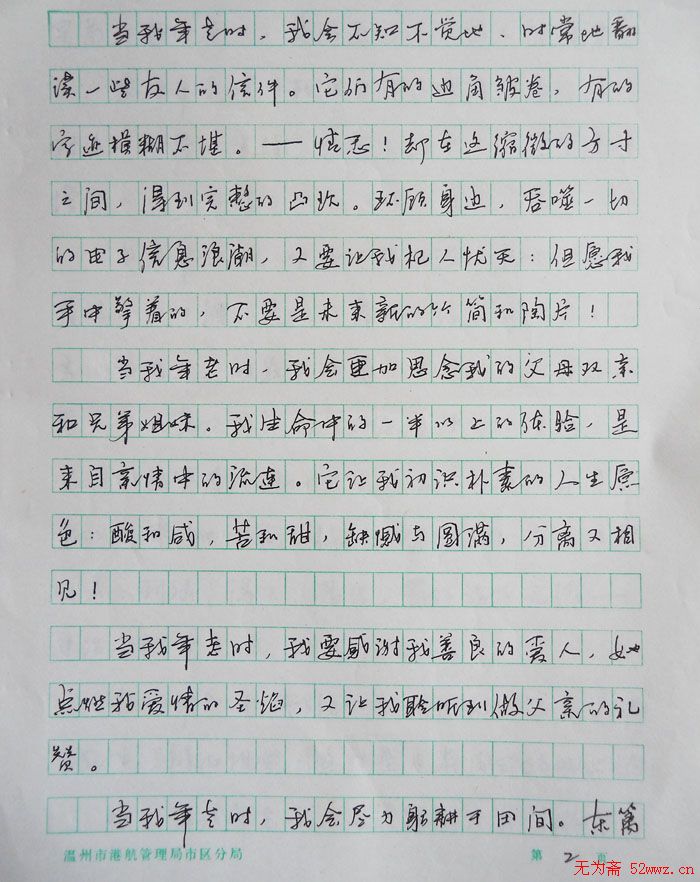 当我年老时，我会不知不觉地、时常地翻
读一些友人的信件。它们有的边角皱卷，有的
字迹模糊不堪。——情态！却在这缩微的方寸
之间，得到完整的凸现。环顾身边，吞噬一切
的电子信息浪潮，又要让我杞人忧天：但愿我
手中擎着的，不要是未来新的竹简和陶片！
当我年老时，我会更加思念我的父母双亲
和兄弟姐妹。我生命中的一半以上的体验，是
来自亲情中的流连。它让我初识朴素的人生原
色：酸和咸，苦和甜，缺憾与圆满，分离又相
见！
当我年老时，我要感谢我善良的爱人，她
点燃我爱情的圣焰，又让我聆听到做父亲的礼
赞。
当我年老时，我会尽力躬耕于田间。东篱
温州市港航管理局市区分局 第 2 页
无为斋 52wwz.cn